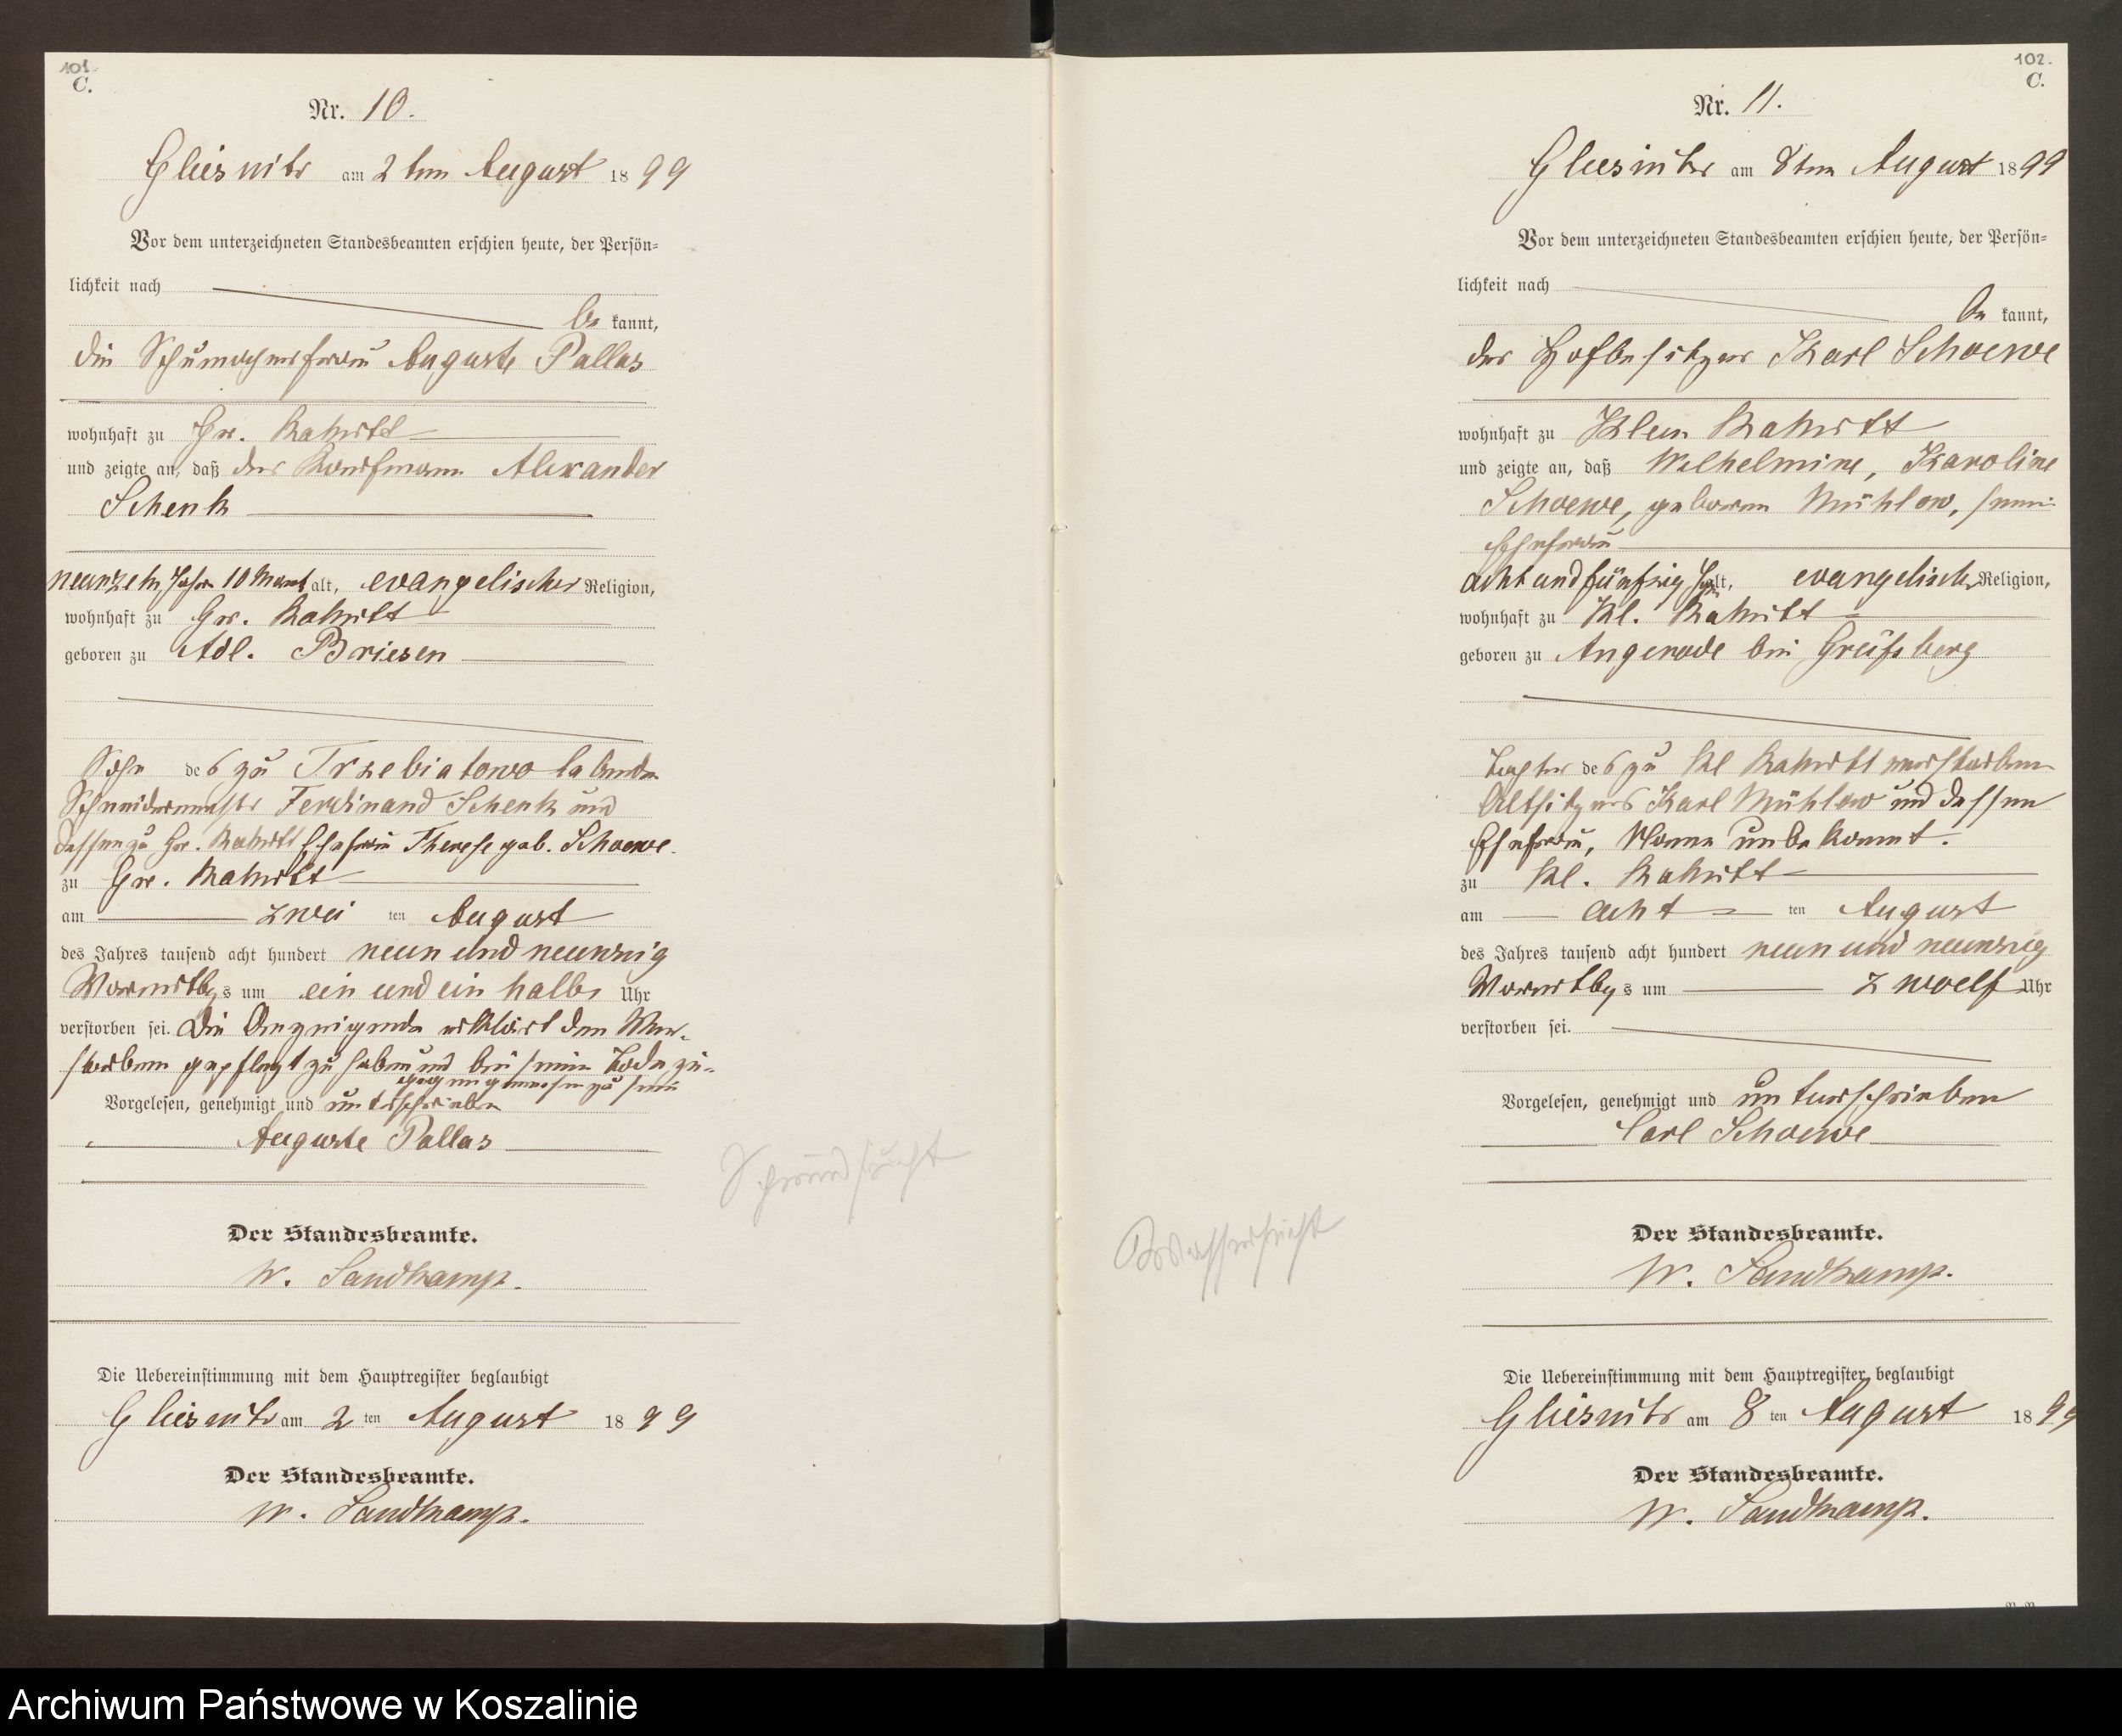 101.
C.
Nr. 10.
Gliesnitz am 2ten August 1899
Vor dem unterzeichneten Standesbeamten erschien heute, der Persön=
lichkeit nach
be kannt,
die Schumacherfrau Auguste Pallas
wohnhaft zu Gr. Rakitt
und zeigte an, daß der Kaufmann Alexander
Schenk
neunzehn Jahre 10 Monat alt, evangelischer Religion,
wohnhaft zu Gr. Rakitt
geboren zu Adl. Briesen
Sohn des zu Trzebiatowo lebenden
Schneidermeister Ferdinand Schenk und
dessen zu Gr. Rakitt Ehefrau Therese geb. Schoewe
zu Gr. Rakitt
am zwei ten August
des Jahres tausend acht hundert neun und neunzig
Vormittags um ein und ein halb Uhr
verstorben sei. Die Anzeigende erklärt den Ver-
storbenen gepflegt zu haben und bei seinem Tode zu-
gegen gewesen zu sein
Vorgelesen, genehmigt und unterschrieben
Auguste Pallas
Schwindsucht
Der Standesbeamte.
W. Sandkamp.
Die Uebereinstimmung mit dem Hauptregister beglaubigt
Gliesnitz am 2 ten August 1899
Der Standesbeamte.
W. Sandkamp.
102.
C.
Nr. 11.
Gliesnitz am 8ten August 1899
Vor dem unterzeichneten Standesbeamten erschien heute, der Persön=
lichkeit nach
be kannt,
der Hofbesitzer Karl Schoewe
wohnhaft zu Klein Rakitt
und zeigte an, daß Wilhelmine, Karoline
Schoewe, geborene Mühlow, seine
Ehefrau
achtundfünfzig J. alt, evangelischer Religion,
wohnhaft zu Kl. Rakitt
geboren zu Angerode bei
Tochter des zu Kl Rakitt verstorbenen
Altsitzers Karl Mühlow und dessen
Ehefrau, Name unbekannt.
zu Kl. Rakitt
am acht ten August
des Jahres tausend acht hundert neun und neunzig
Vormittags um zwoelf Uhr
verstorben sei.
Vorgelesen, genehmigt und unterschrieben
Carl Schoewe
Der Standesbeamte.
W. Sandkamp.
Die Uebereinstimmung mit dem Hauptregister beglaubigt
Gliesnitz am 8 ten August 1899
Der Standesbeamte.
W. Sandkamp.
Archiwum Państwowe w Koszalinie